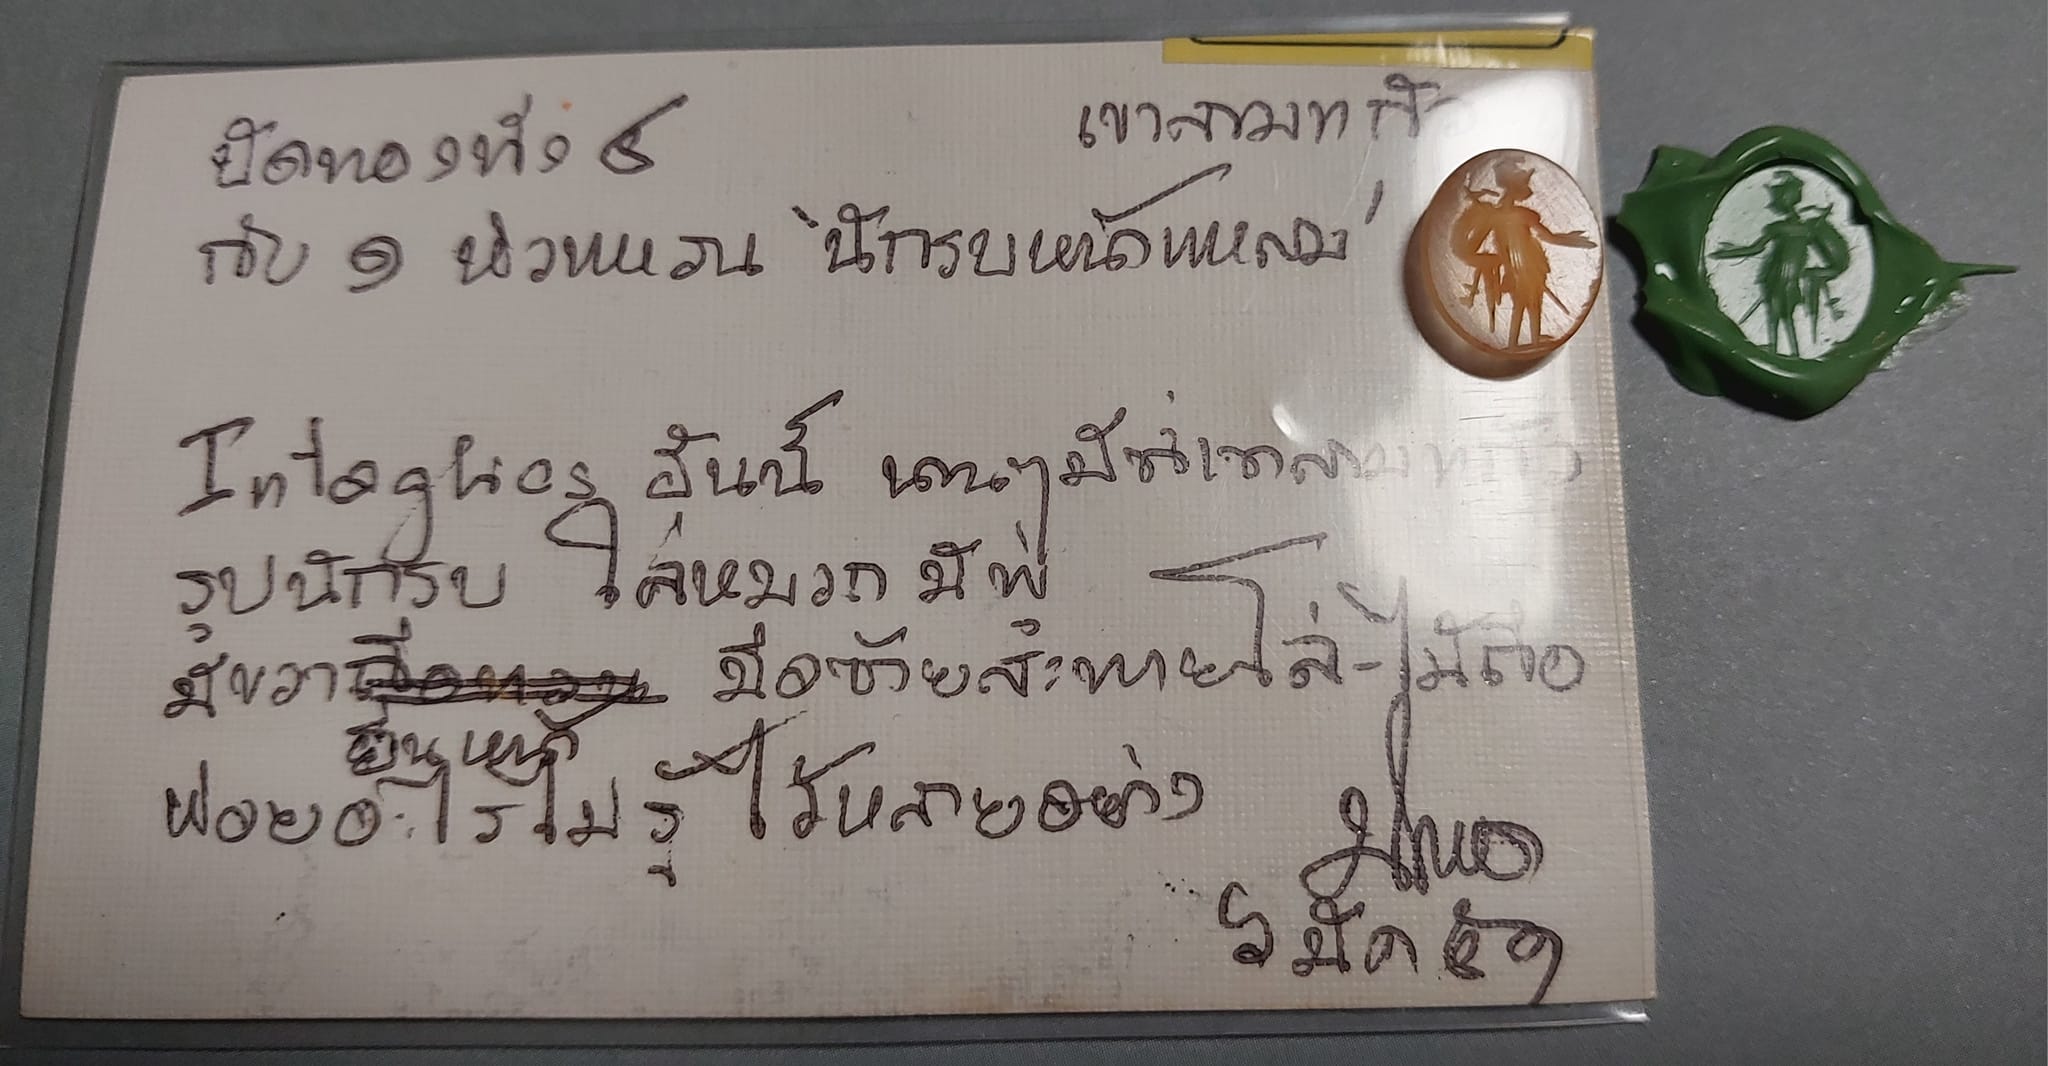 ปิดทองทั้ง ๕ เขาสามแก้ว
กับ ๑ หัวแหวน 'นักรบหน้าแหลม'
Intaglios อันนี้ นานๆมีที่เขาสามแก้ว
รูปนักรบ ใส่หมวก มีพู่
มือขวา มือซ้ายสะพายโล่-ไม้ถือ
ยื่นหน้า
ห้อยอะไรไม่รู้ ไว้หลายอย่าง